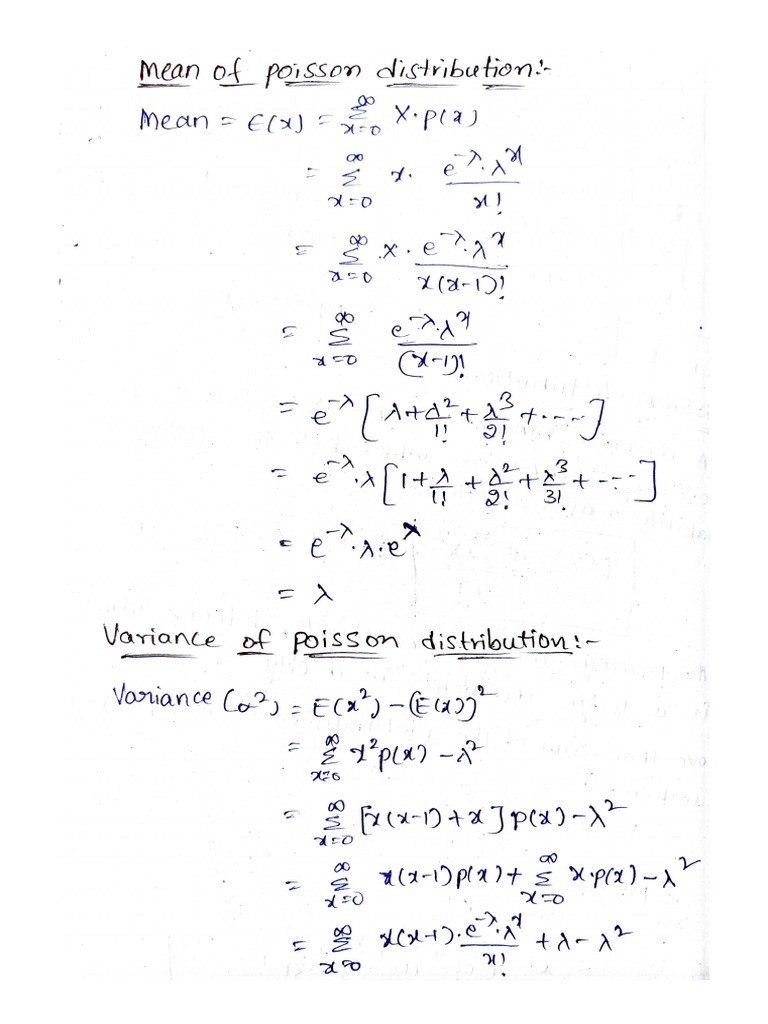 Mean of poisson distribution:-
Mean = E(x) = ∞Σx=0 X·p(x)
= ∞Σx=0 x. e^-λ·λ^x / x!
= ∞Σx=0 .x. e^-λ·λ^x / x(x-1)!
= ∞Σx=0 e^-λ·λ^x / (x-1)!
= e^-λ [λ+λ²/1!+λ³/2!+----]
= e^-λ·λ[1+λ/1!+λ²/2!+λ³/3!+---]
= e^-λ·λ·e^λ
= λ
Variance of poisson distribution:-
Variance (σ²) = E(x²)-(E(x))²
= ∞Σx=0 x²p(x)-λ²
= ∞Σx=0 [x(x-1)+x]p(x)-λ²
= ∞Σx=0 x(x-1)p(x)+∞Σx=0 x·p(x)-λ²
= ∞Σx=0 x(x-1)·e^-λ·λ^x / x! +λ-λ²